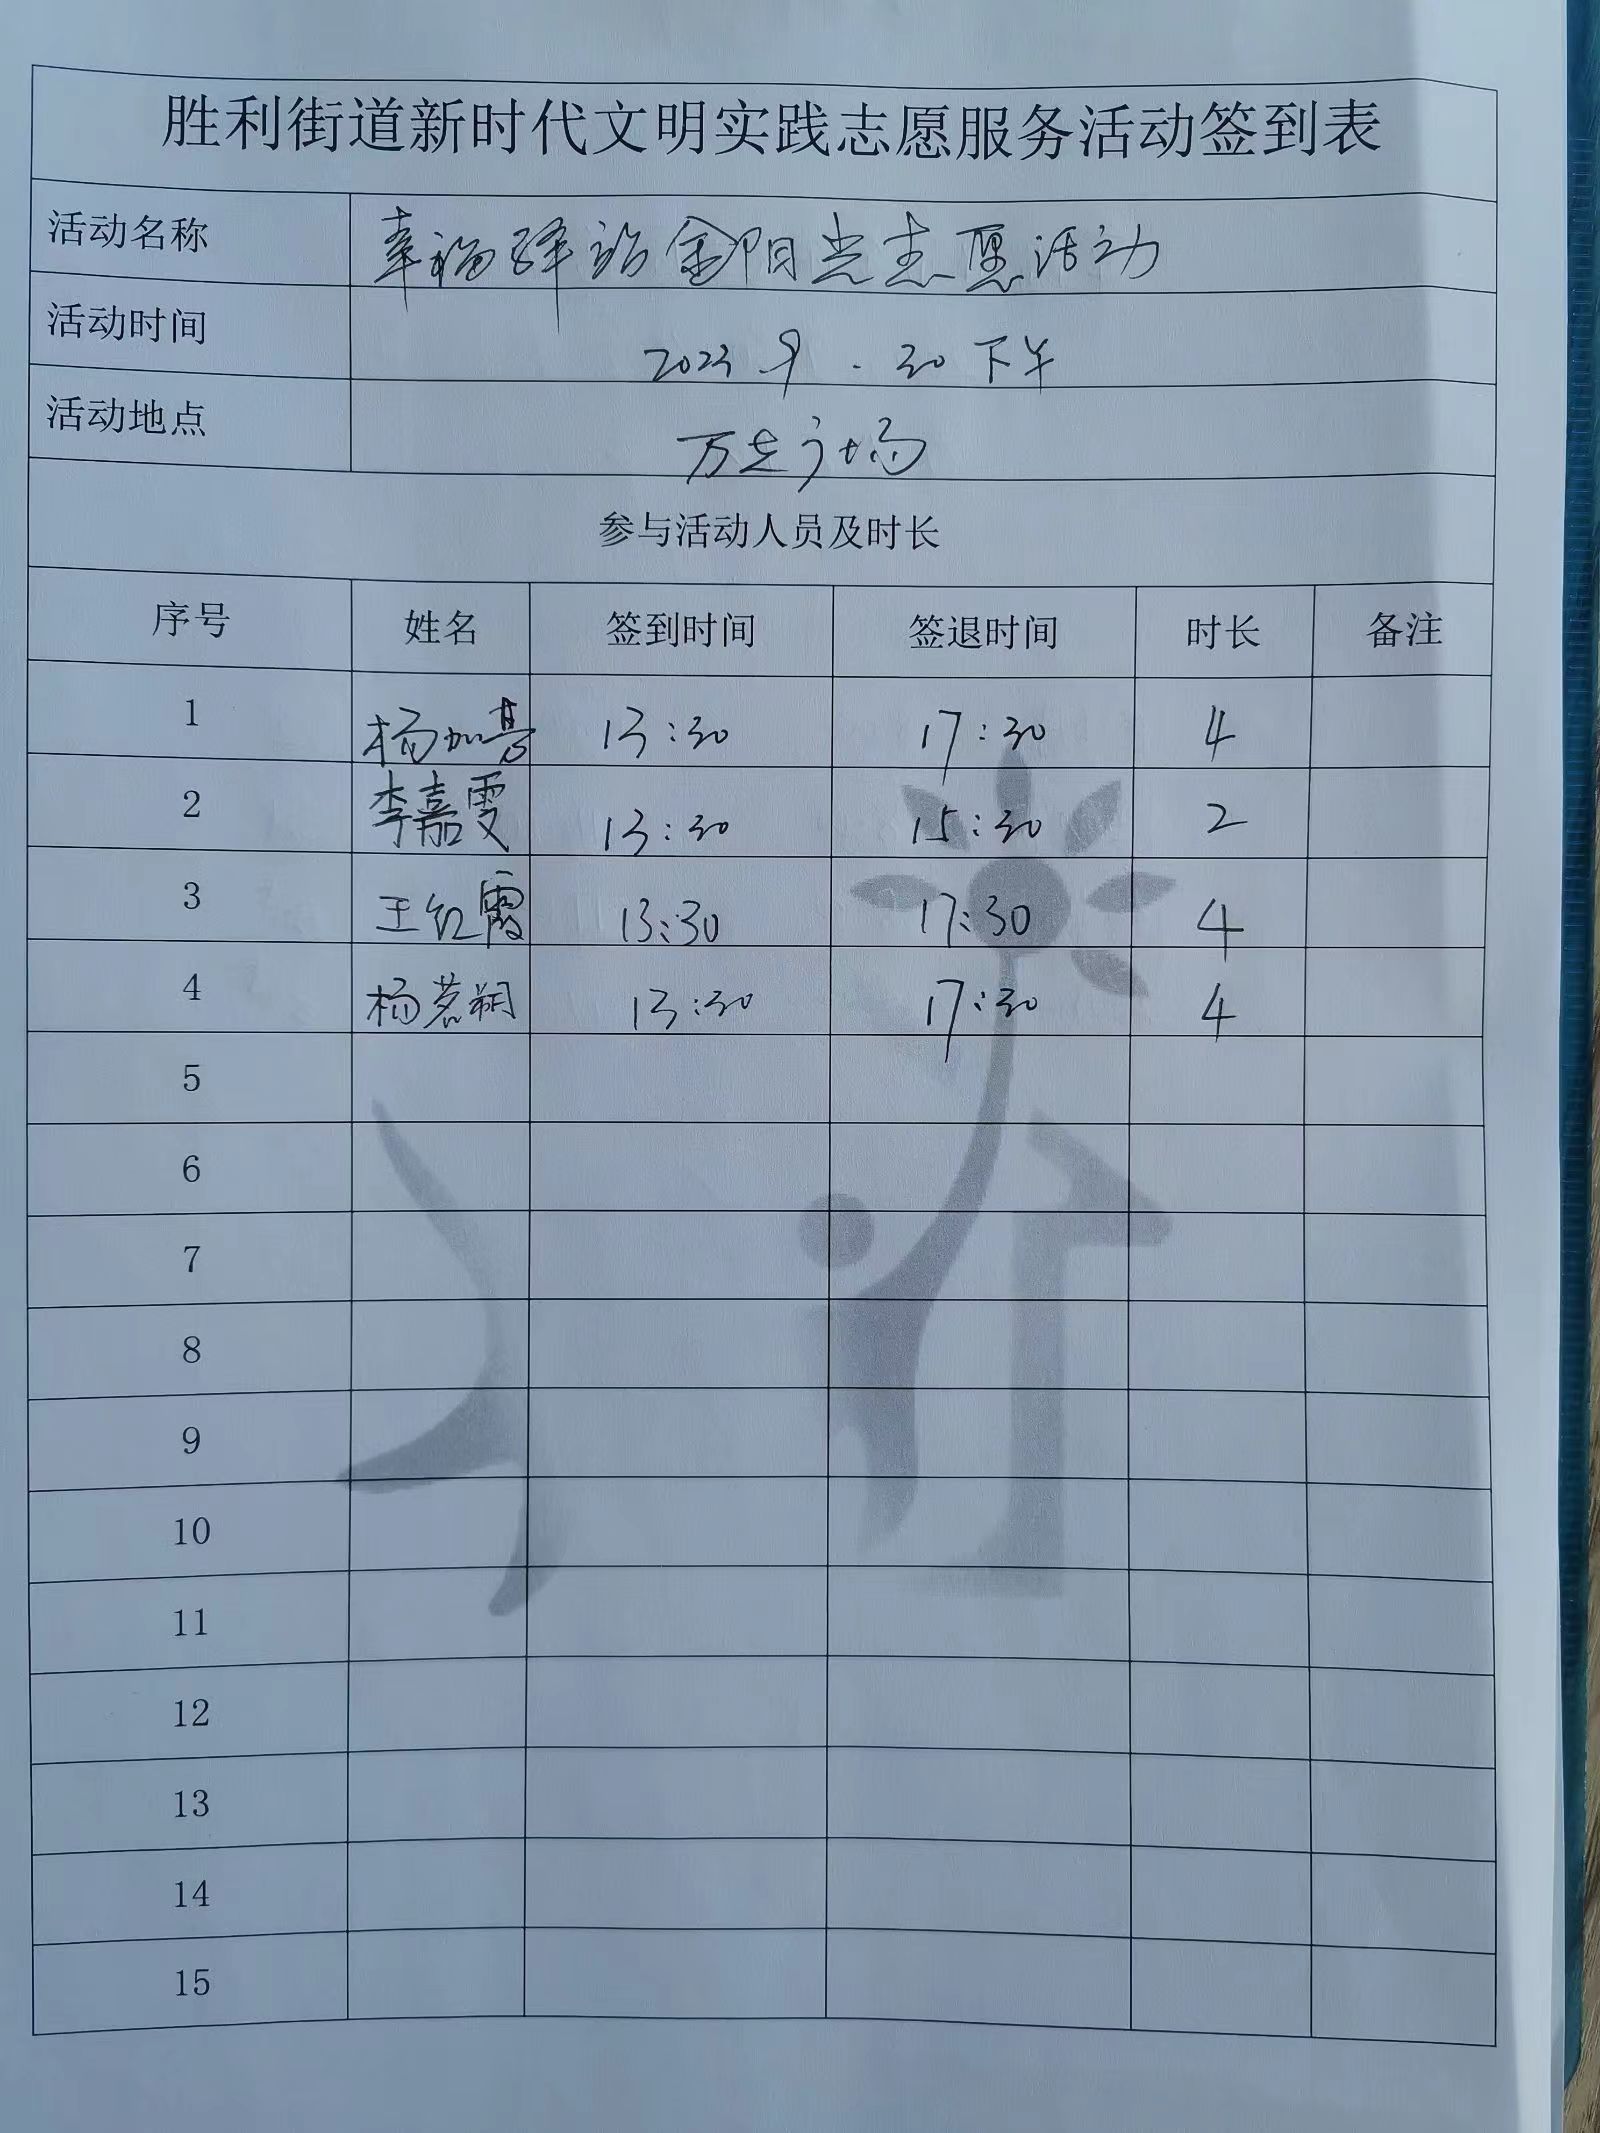 胜利街道新时代文明实践志愿服务活动签到表
活动名称 幸福驿站金阳光志愿活动
活动时间 2023 9 . 30 下午
活动地点 万达广场
参与活动人员及时长
序号 姓名 签到时间 签退时间 时长 备注
1 13:30 17:30 4
2 李嘉雯 13:30 15:30 2
3 王红霞 13:30 17:30 4
4 杨茗翔 13:30 17:30 4
5
6
7
8
9
10
11
12
13
14
15